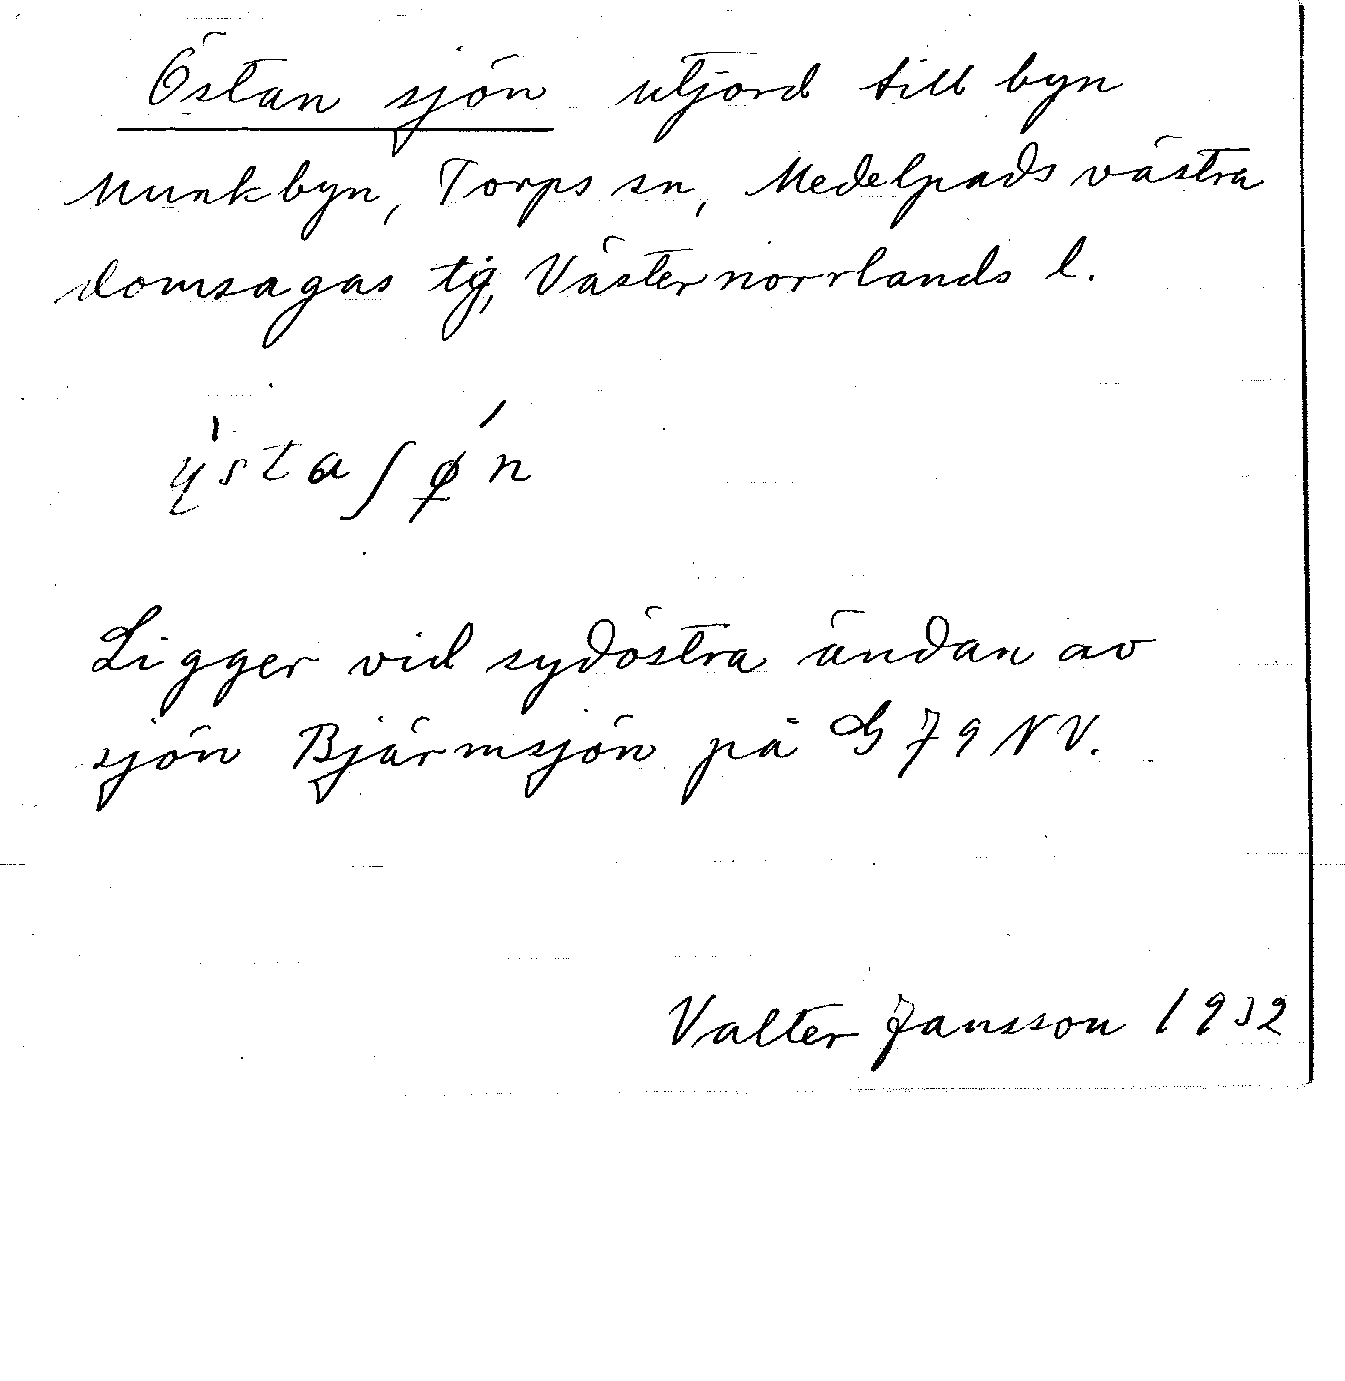 Östan sjön utjord till byn
Munkbyn, Torps sn, Medelpads västra
domsagas tg, Västernorrlands l.
Ligger vid sydöstra ändan av
sjön Bjärmsjön på G 79 NV.
Valter Jansson 1932